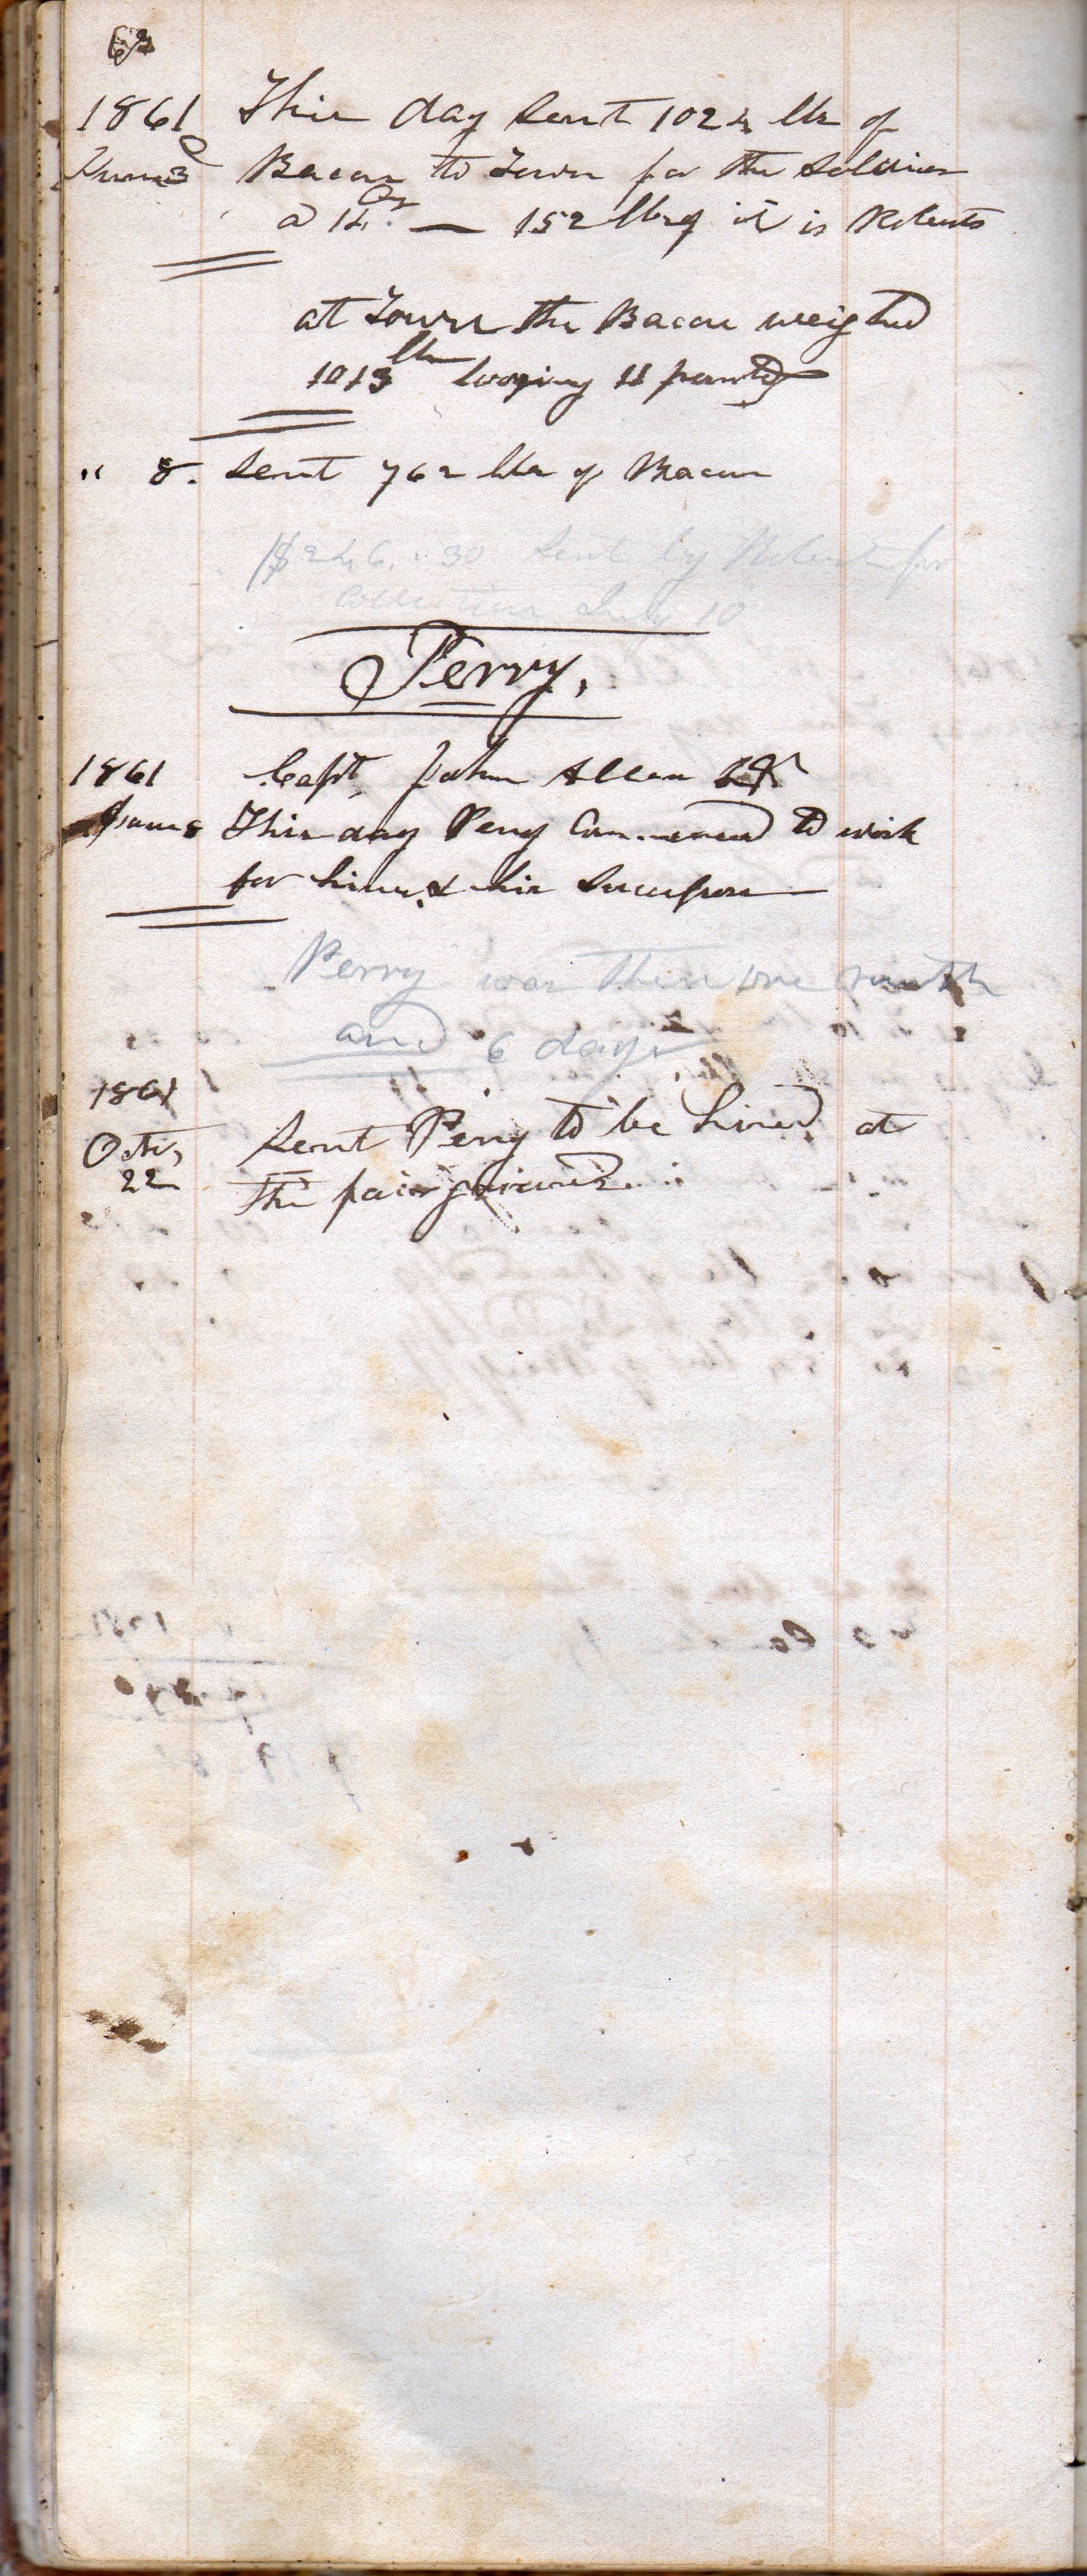 62
1861 This day sent 1024 lbs of
June 3d Bacon to Town for the Soldiers
a 14 cts — 152 lbs of it is Roberts
at Town the Bacon weighed
1013 lbs loosing 11 pounds
" 8. Sent 762 lbs of Bacon
$246.30 sent by Robert for
collection July 10
Perry,
1861 Capt, John Allen Dr
June 8 This day Perry Commenced to work
for him & his Successors
Perry was there one month
and 6 days
1861
Octr, Sent Perry to be hired at
22 the fair grounds